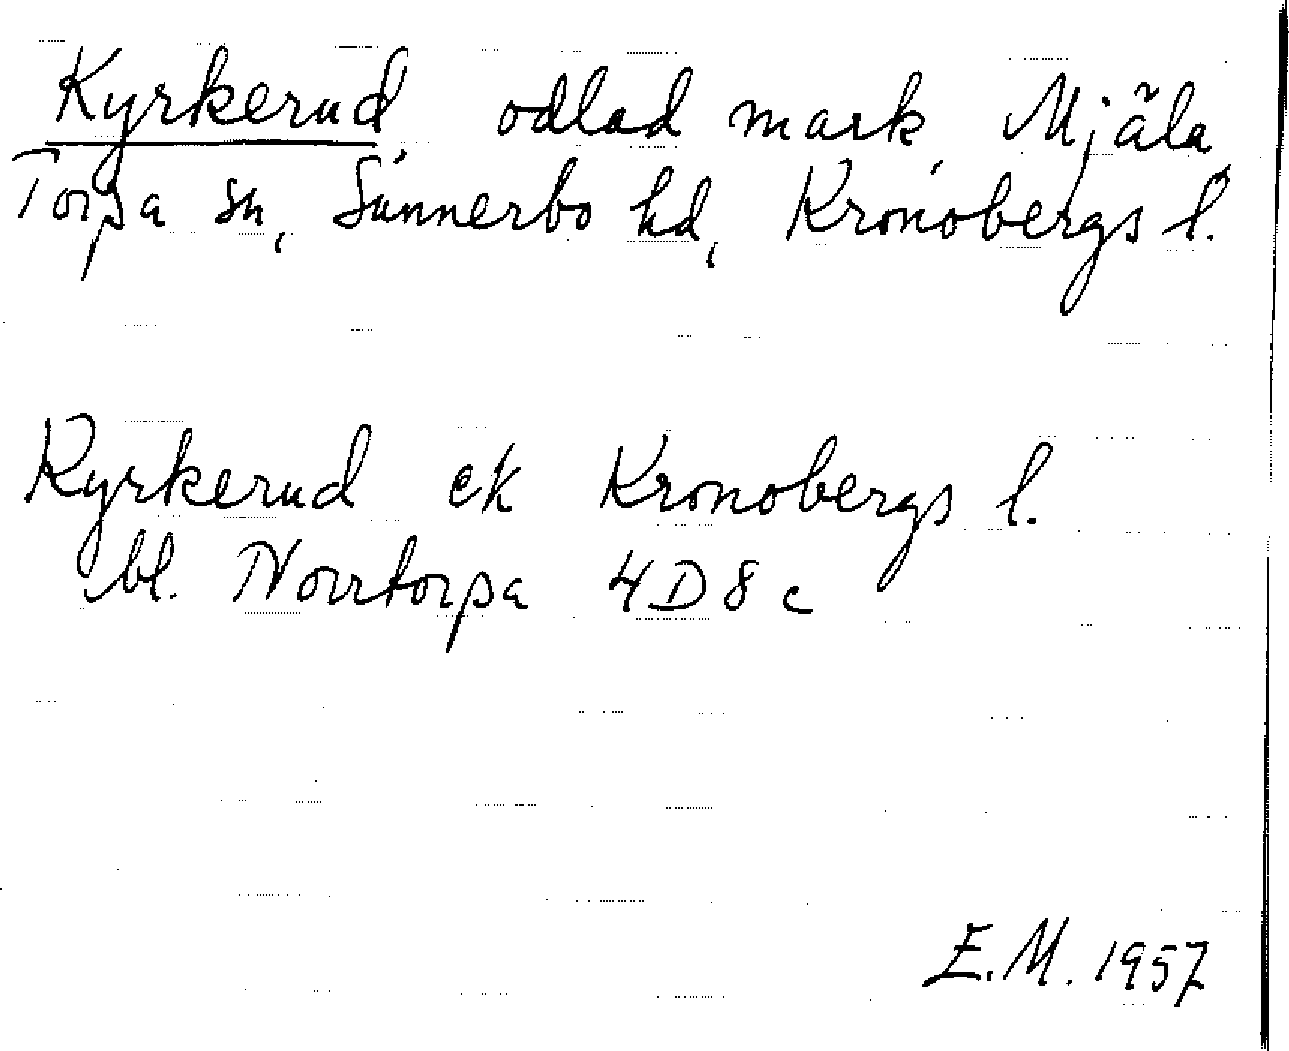 Kyrkerud, odlad mark, Mjäla,
Torpa sn, Sunnerbo hd, Kronobergs l.
Kyrkerud ek Kronobergs l.
bl. Norrtorpa 4D8c
E.M. 1957